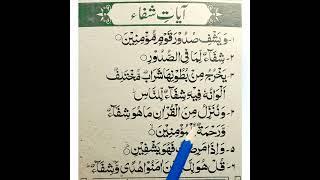 آیاتِ شفاء
۱- وَيَشْفِ صُدُوْرَ قَوْمٍ مُّؤْمِنِيْنَ
۲- شِفَآءٌ لِّمَا فِی الصُّدُوْرِ
۳- يَخْرُجُ مِنْ بُطُوْنِهَا شَرَابٌ مُّخْتَلِفٌ
اَلْوَانُهٗ فِيْهِ شِفَآءٌ لِّلنَّاسِ
۴- وَنُنَزِّلُ مِنَ الْقُرْاٰنِ مَا هُوَ شِفَآءٌ
وَّرَحْمَةٌ لِّلْمُؤْمِنِيْنَ
۵- وَاِذَا مَرِضْتُ فَهُوَ يَشْفِيْنِ
۶- قُلْ هُوَ لِلَّذِيْنَ اٰمَنُوْا هُدًی وَّشِفَآءٌ